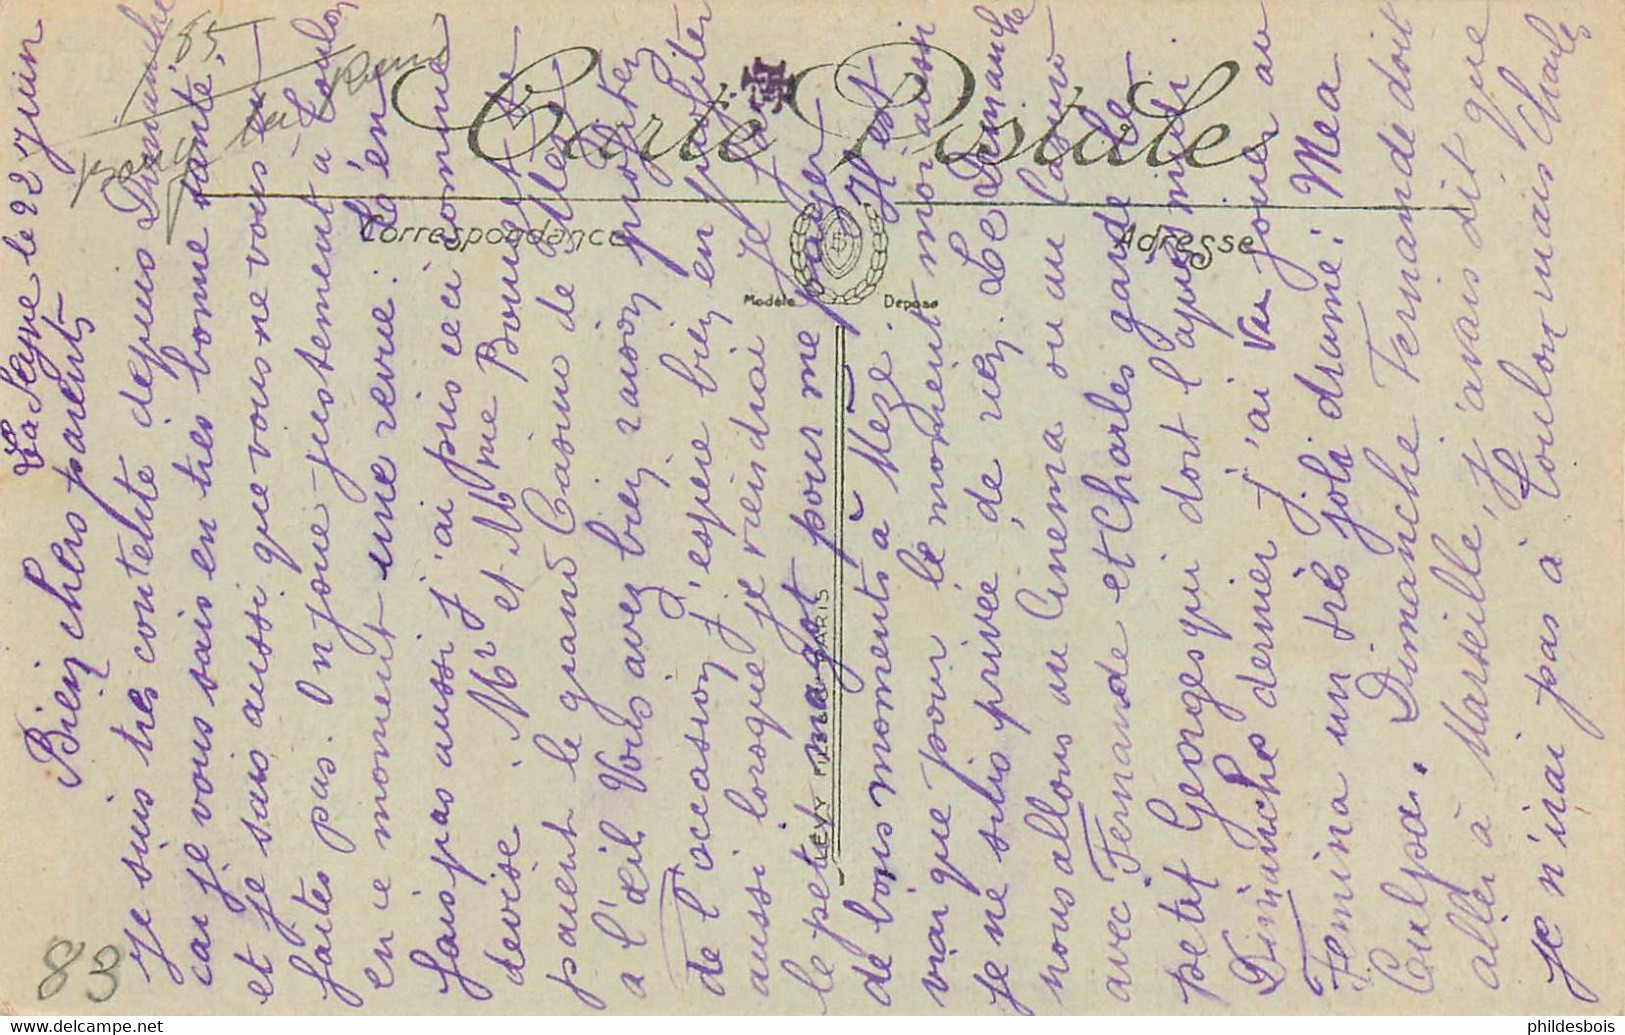 La Seyne le 22 Juin
Bien chers parents
Je suis très contente depuis Dimanche
car je vous sais en très bonne santé,
et je sais aussi que vous ne vous en
faites pas. On joue justement à Toulon
en ce moment une revue: Te'en
fais pas aussi j'ai pris ceci comme
devise. Mr et Mme Bouquette
paient le grand Casino de
a l'œil Vous avez bien raison profitez
de l'occasion j'espère bien en profiter
aussi lorsque je viendrai Je ferai
le petit magot pour me payer
de bons moments à Mèze. Il est
vrai que pour le moment moi aussi
je ne suis privée de rien. Le Dimanche
nous allons au Cinema ou au Casino
avec Fernande et Charles garde le
petit Georges qui dort l'après midi.
Dimanche dernier j'ai vu jouer au
Femina un très joli drame: Mea
Culpa. Dimanche Fernande doit
aller à Marseille, j'avais dit que
je n'irai pas à Toulon mais Charles
Carte Postale
Correspondance
Adresse
Modèle
Déposé
LEVY FILS PARIS
85
83
phildesbois